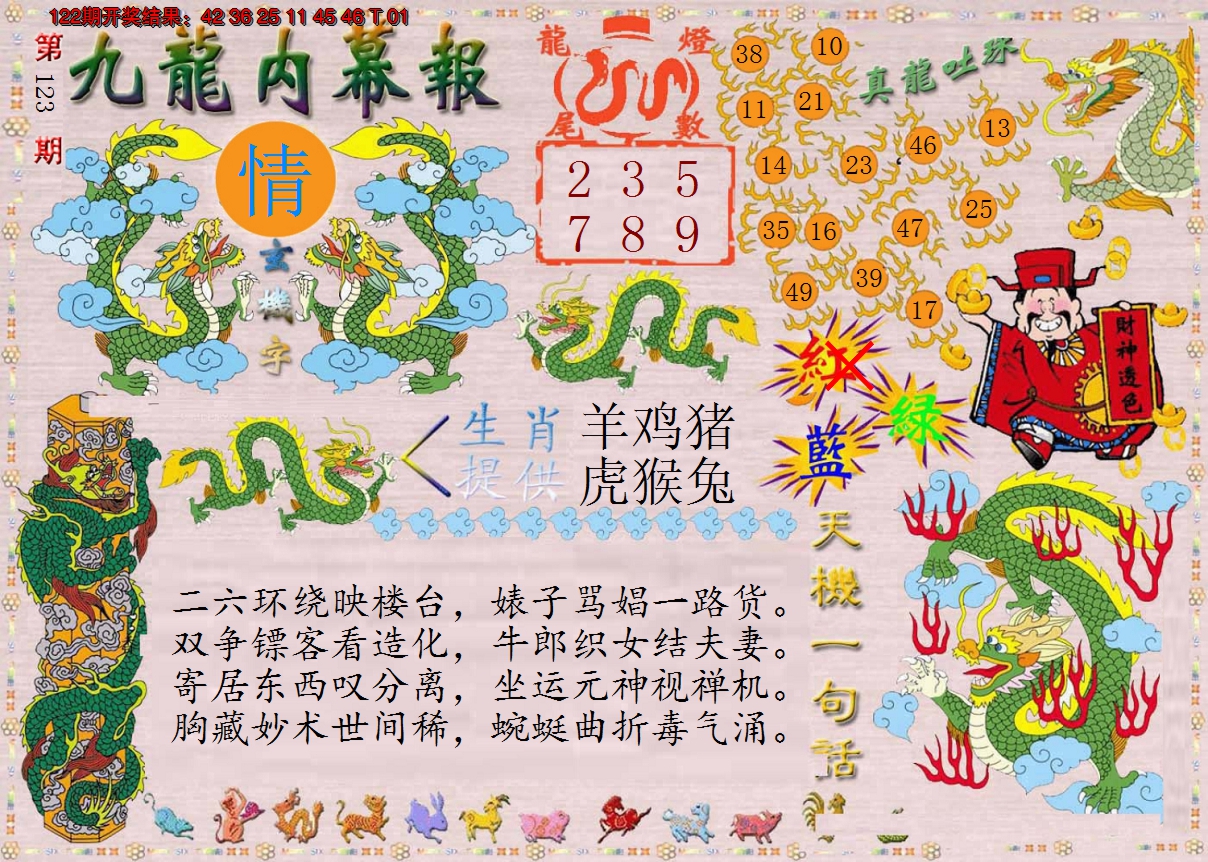 122期开奖结果：42 36 25 11 45 46 T 01
第123期
九龍内幕報
情
玄機字
龍燈
尾數
2 3 5
7 8 9
真龍吐珠
38
10
11
21
46
13
14
23
35
16
47
25
49
39
17
財神透色
紅
绿
藍
生肖提供
羊鸡猪
虎猴兔
天機一句话
二六环绕映楼台，婊子骂娼一路货。
双争镖客看造化，牛郎织女结夫妻。
寄居东西叹分离，坐运元神视禅机。
胸藏妙术世间稀，蜿蜒曲折毒气涌。